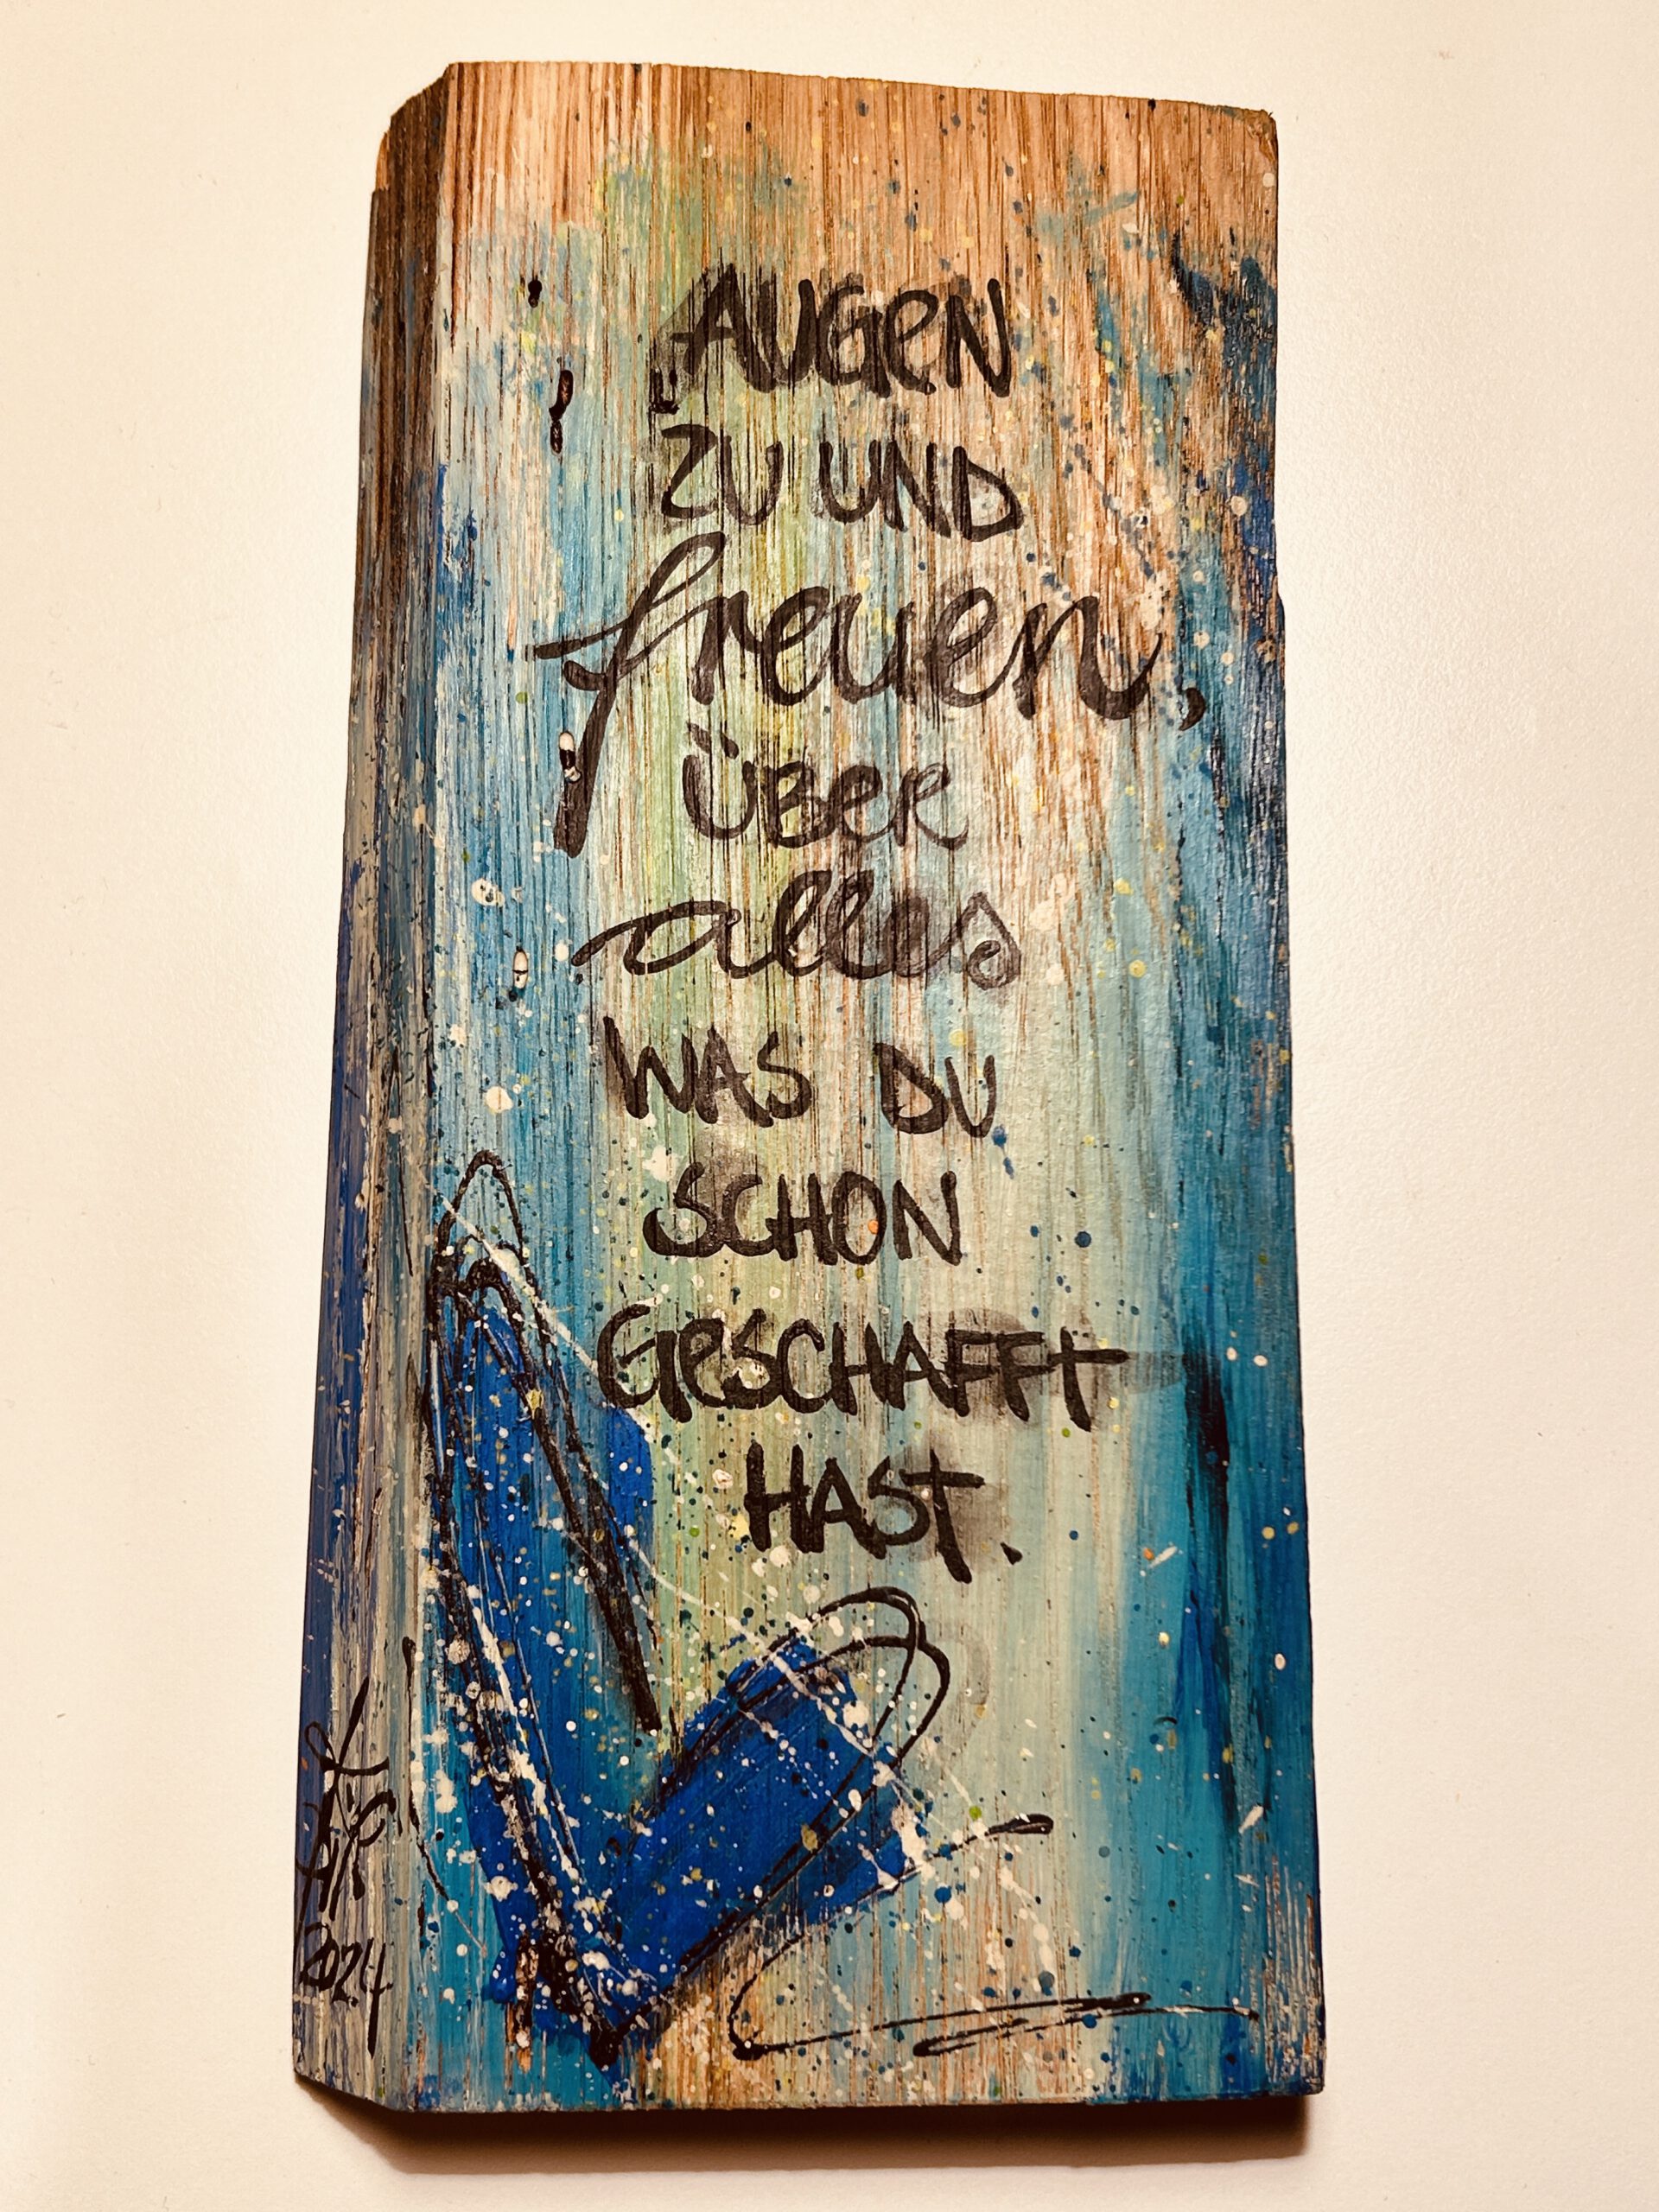 AUGEN
ZU UND
freuen,
ÜBER
alles
WAS DU
SCHON
GESCHAFFT
HAST.
2024